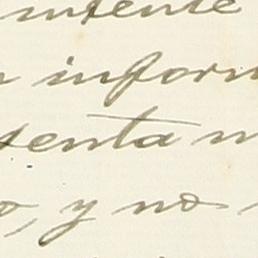 intente
inform
senta
o, y no